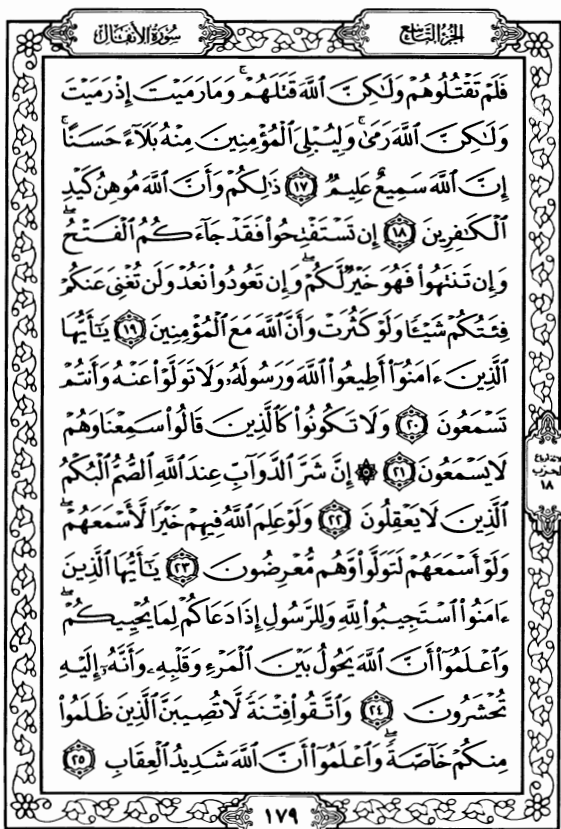 سُورَةُ الأَنفَالِ
الجُزءُ التَّاسِعُ
فَلَمْ تَقْتُلُوهُمْ وَلَٰكِنَّ ٱللَّهَ قَتَلَهُمْ ۚ وَمَا رَمَيْتَ إِذْ رَمَيْتَ
وَلَٰكِنَّ ٱللَّهَ رَمَىٰ ۚ وَلِيُبْلِىَ ٱلْمُؤْمِنِينَ مِنْهُ بَلَآءً حَسَنًا ۚ
إِنَّ ٱللَّهَ سَمِيعٌ عَلِيمٌ ١٧ ذَٰلِكُمْ وَأَنَّ ٱللَّهَ مُوهِنُ كَيْدِ
ٱلْكَٰفِرِينَ ١٨ إِن تَسْتَفْتِحُوا۟ فَقَدْ جَآءَكُمُ ٱلْفَتْحُ ۖ
وَإِن تَنتَهُوا۟ فَهُوَ خَيْرٌ لَّكُمْ ۖ وَإِن تَعُودُوا۟ نَعُدْ وَلَن تُغْنِىَ عَنكُمْ
فِئَتُكُمْ شَيْـًٔا وَلَوْ كَثُرَتْ وَأَنَّ ٱللَّهَ مَعَ ٱلْمُؤْمِنِينَ ١٩ يَٰٓأَيُّهَا
ٱلَّذِينَ ءَامَنُوٓا۟ أَطِيعُوا۟ ٱللَّهَ وَرَسُولَهُۥ وَلَا تَوَلَّوْا۟ عَنْهُ وَأَنتُمْ
تَسْمَعُونَ ٢٠ وَلَا تَكُونُوا۟ كَٱلَّذِينَ قَالُوا۟ سَمِعْنَا وَهُمْ
لَا يَسْمَعُونَ ٢١ ۞ إِنَّ شَرَّ ٱلدَّوَآبِّ عِندَ ٱللَّهِ ٱلصُّمُّ ٱلْبُكْمُ
ٱلَّذِينَ لَا يَعْقِلُونَ ٢٢ وَلَوْ عَلِمَ ٱللَّهُ فِيهِمْ خَيْرًا لَّأَسْمَعَهُمْ ۖ
وَلَوْ أَسْمَعَهُمْ لَتَوَلَّوا۟ وَّهُم مُّعْرِضُونَ ٢٣ يَٰٓأَيُّهَا ٱلَّذِينَ
ءَامَنُوا۟ ٱسْتَجِيبُوا۟ لِلَّهِ وَلِلرَّسُولِ إِذَا دَعَاكُمْ لِمَا يُحْيِيكُمْ ۖ
وَٱعْلَمُوٓا۟ أَنَّ ٱللَّهَ يَحُولُ بَيْنَ ٱلْمَرْءِ وَقَلْبِهِۦ وَأَنَّهُۥٓ إِلَيْهِ
تُحْشَرُونَ ٢٤ وَٱتَّقُوا۟ فِتْنَةً لَّا تُصِيبَنَّ ٱلَّذِينَ ظَلَمُوا۟
مِنكُمْ خَآصَّةً ۖ وَٱعْلَمُوٓا۟ أَنَّ ٱللَّهَ شَدِيدُ ٱلْعِقَابِ ٢٥
الحزب
١٨
١٧٩